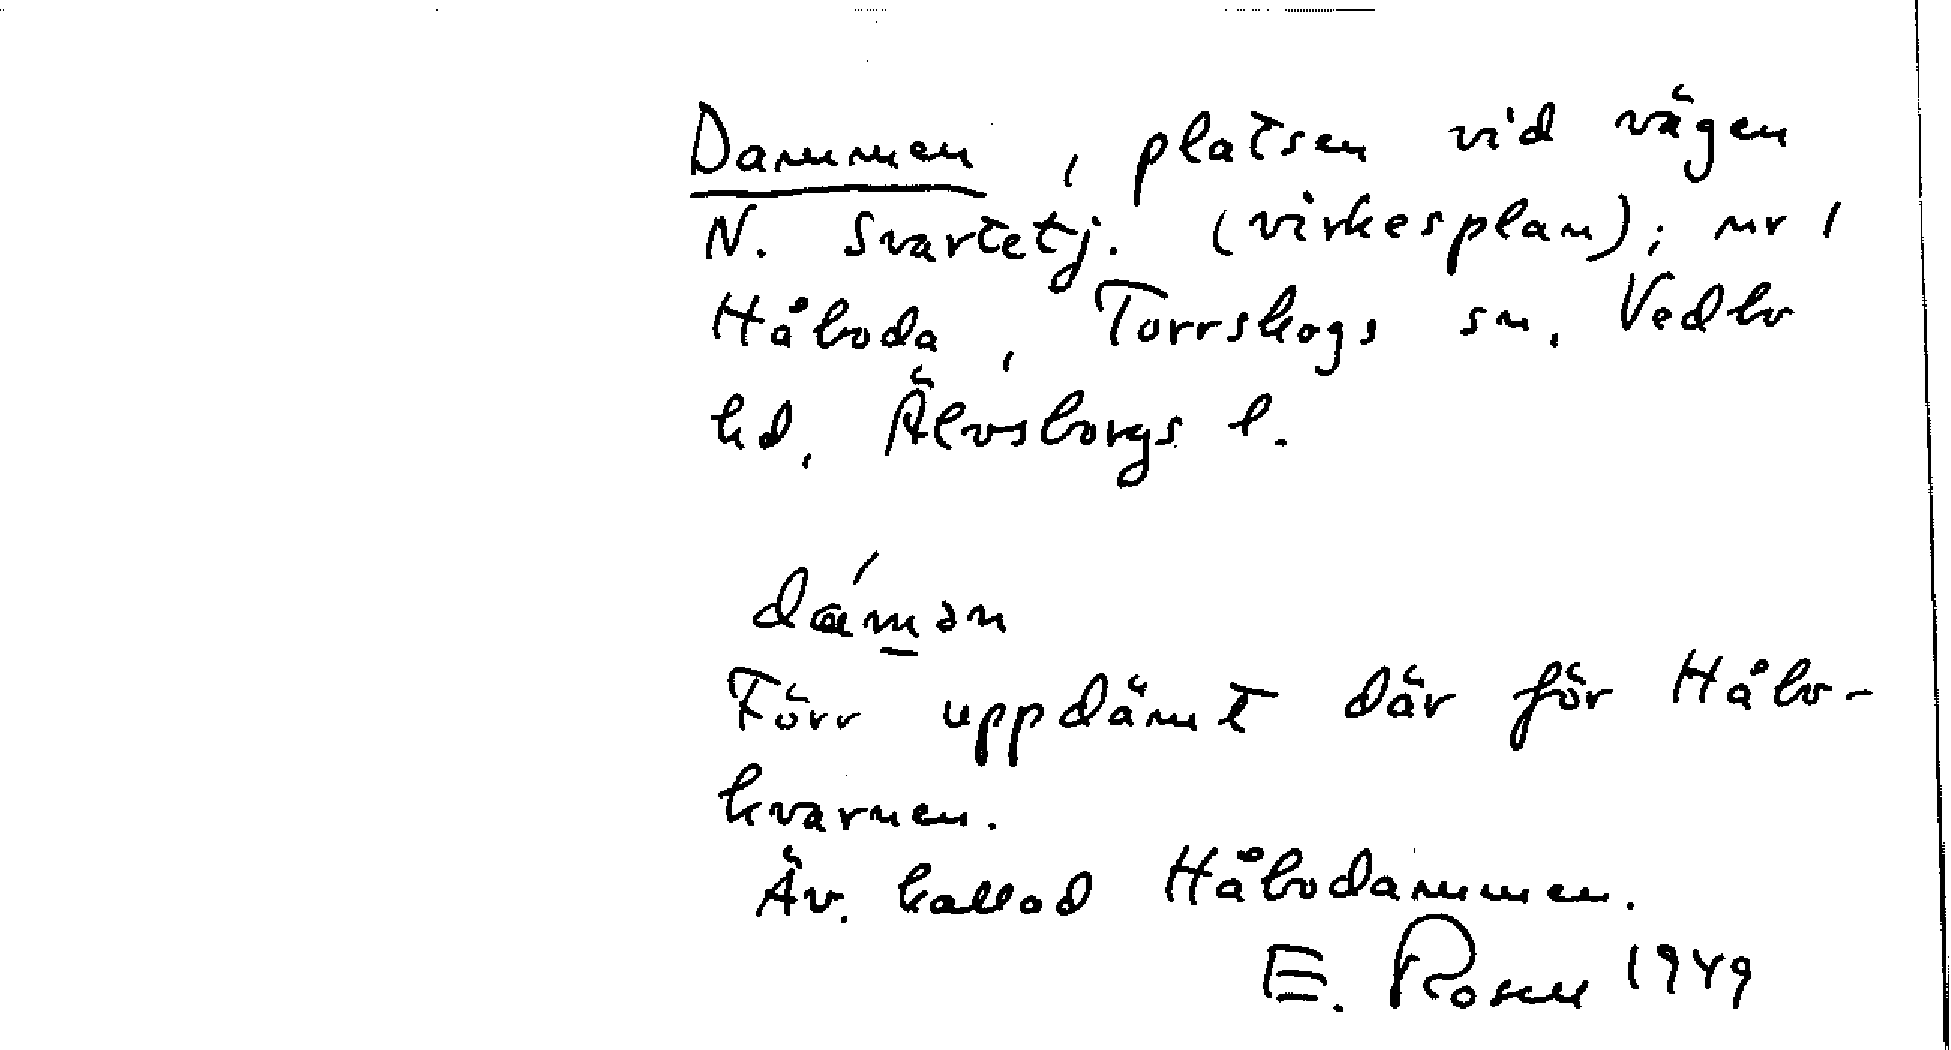 Dammen, platsen vid vägen
N. Svartetj. (virkesplan); nr 1
Håboda, Torrskogs sn, Vedbo
hd, Älvsborgs l.
dám̲ən
Förr uppdämt där för Håbo-
kvarnen.
Äv. kallad Håbodammen.
E. Rosell 1949